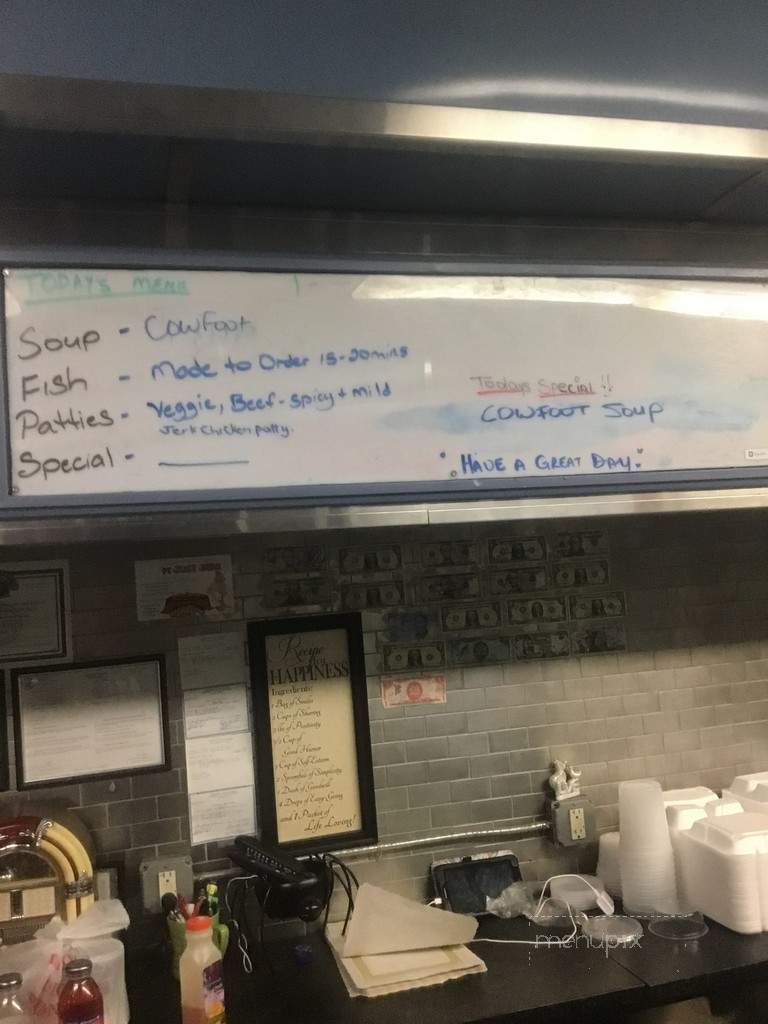 TODAY'S MENU
Soup - Cowfoot
Fish - Made to Order 15-20mins
Patties - Veggie, Beef-Spicy + Mild
Jerk Chicken patty.
Special -
Todays Special !!
COWFOOT SOUP
HAVE A GREAT DAY.
Recipe
for
HAPPINESS
Ingredients:
1 Bag of Smiles
2 Cups of Sharing
of Positivity
1/2 Cup of
Good Humor
1 Cup of Self-Esteem
2 Spoonfuls of Simplicity
1 Dash of Goodwill
4 Drops of Easy-Going
and 1 Packet of
Life Loving!
menupix